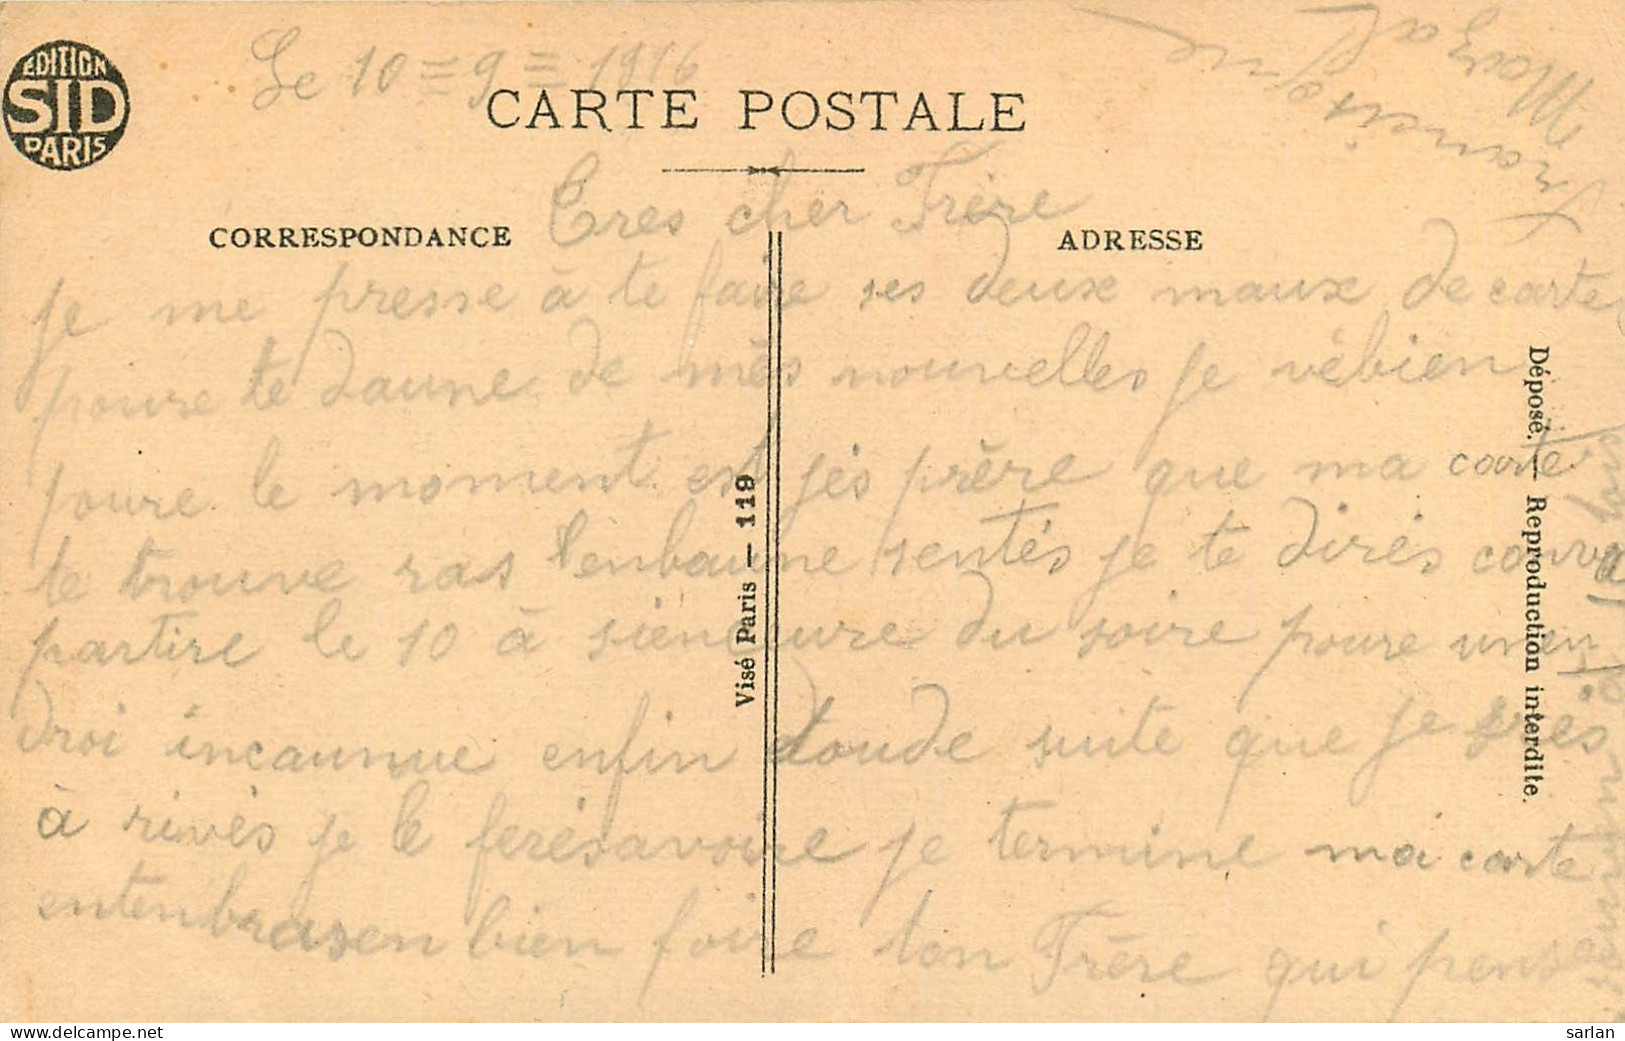 EDITION
SID
PARIS
Le 10 = 9 = 1916
CARTE POSTALE
CORRESPONDANCE
ADRESSE
Tres cher Frère
je me presse à te faire ses deux maux de carte
poure te daune de mês nouvelles je vébien
poure le moment est jés prêre que ma carte
te trouve ras t'enbaune sentés je te dirés couva
partire le 10 à sienceure du soire poure unen
droi incaunue enfin toude suite que je srés
à rivès je le ferésavoire je termine ma carte
entenbrasen bien foire ton Frère qui pense
Visé Paris — 119
Déposé. — Reproduction interdite.
Mazal
Sarlan
delcampe.net